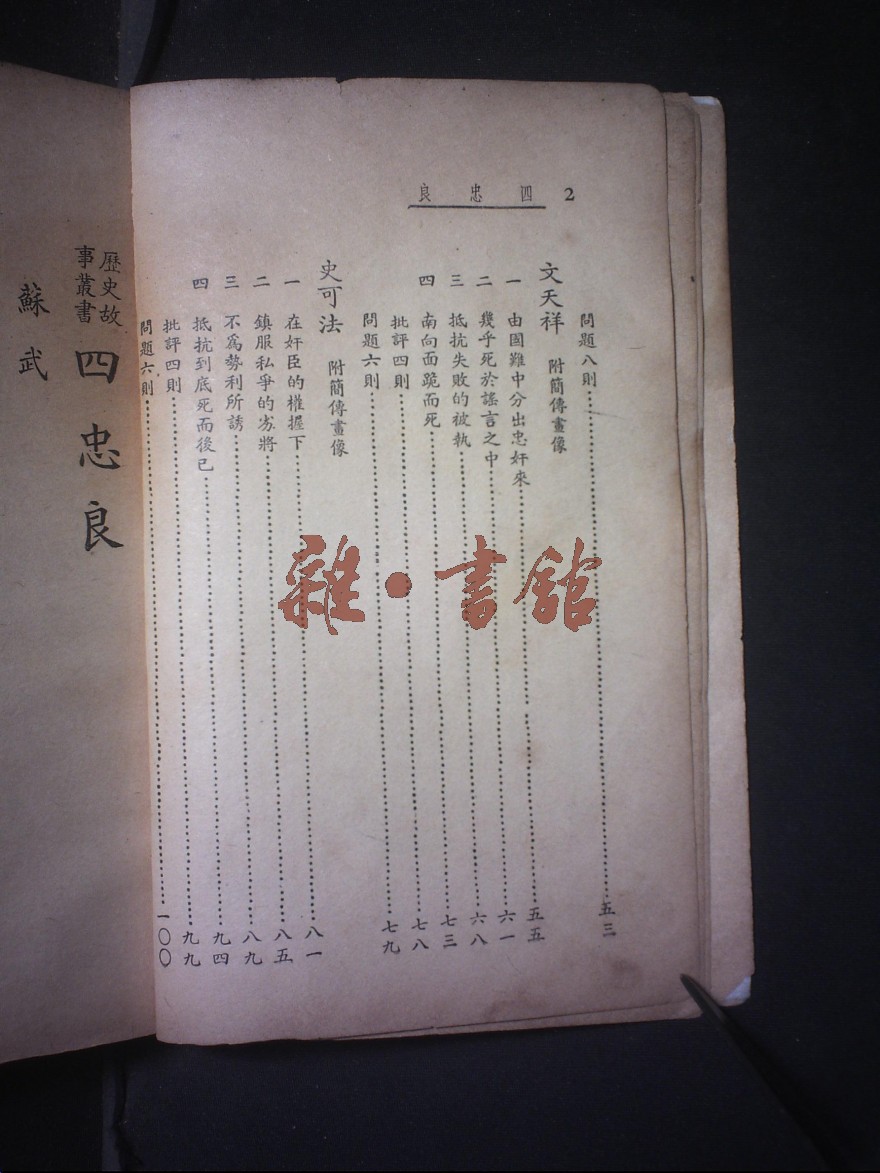 2 四忠良
問題八則……五三
文天祥 附簡傳畫像
一 由國難中分出忠奸來……五五
二 幾乎死於謠言之中……六一
三 抵抗失敗的被執……六八
四 南向面跪而死……七三
批評四則……七八
問題六則……七九
史可法 附簡傳畫像
一 在奸臣的權握下……八一
二 鎮服私爭的劣將……八五
三 不爲勢利所誘……八九
四 抵抗到底死而後已……九四
批評四則……九九
問題六則……一〇〇
歷史故事叢書 四忠良
蘇武
雜·書館